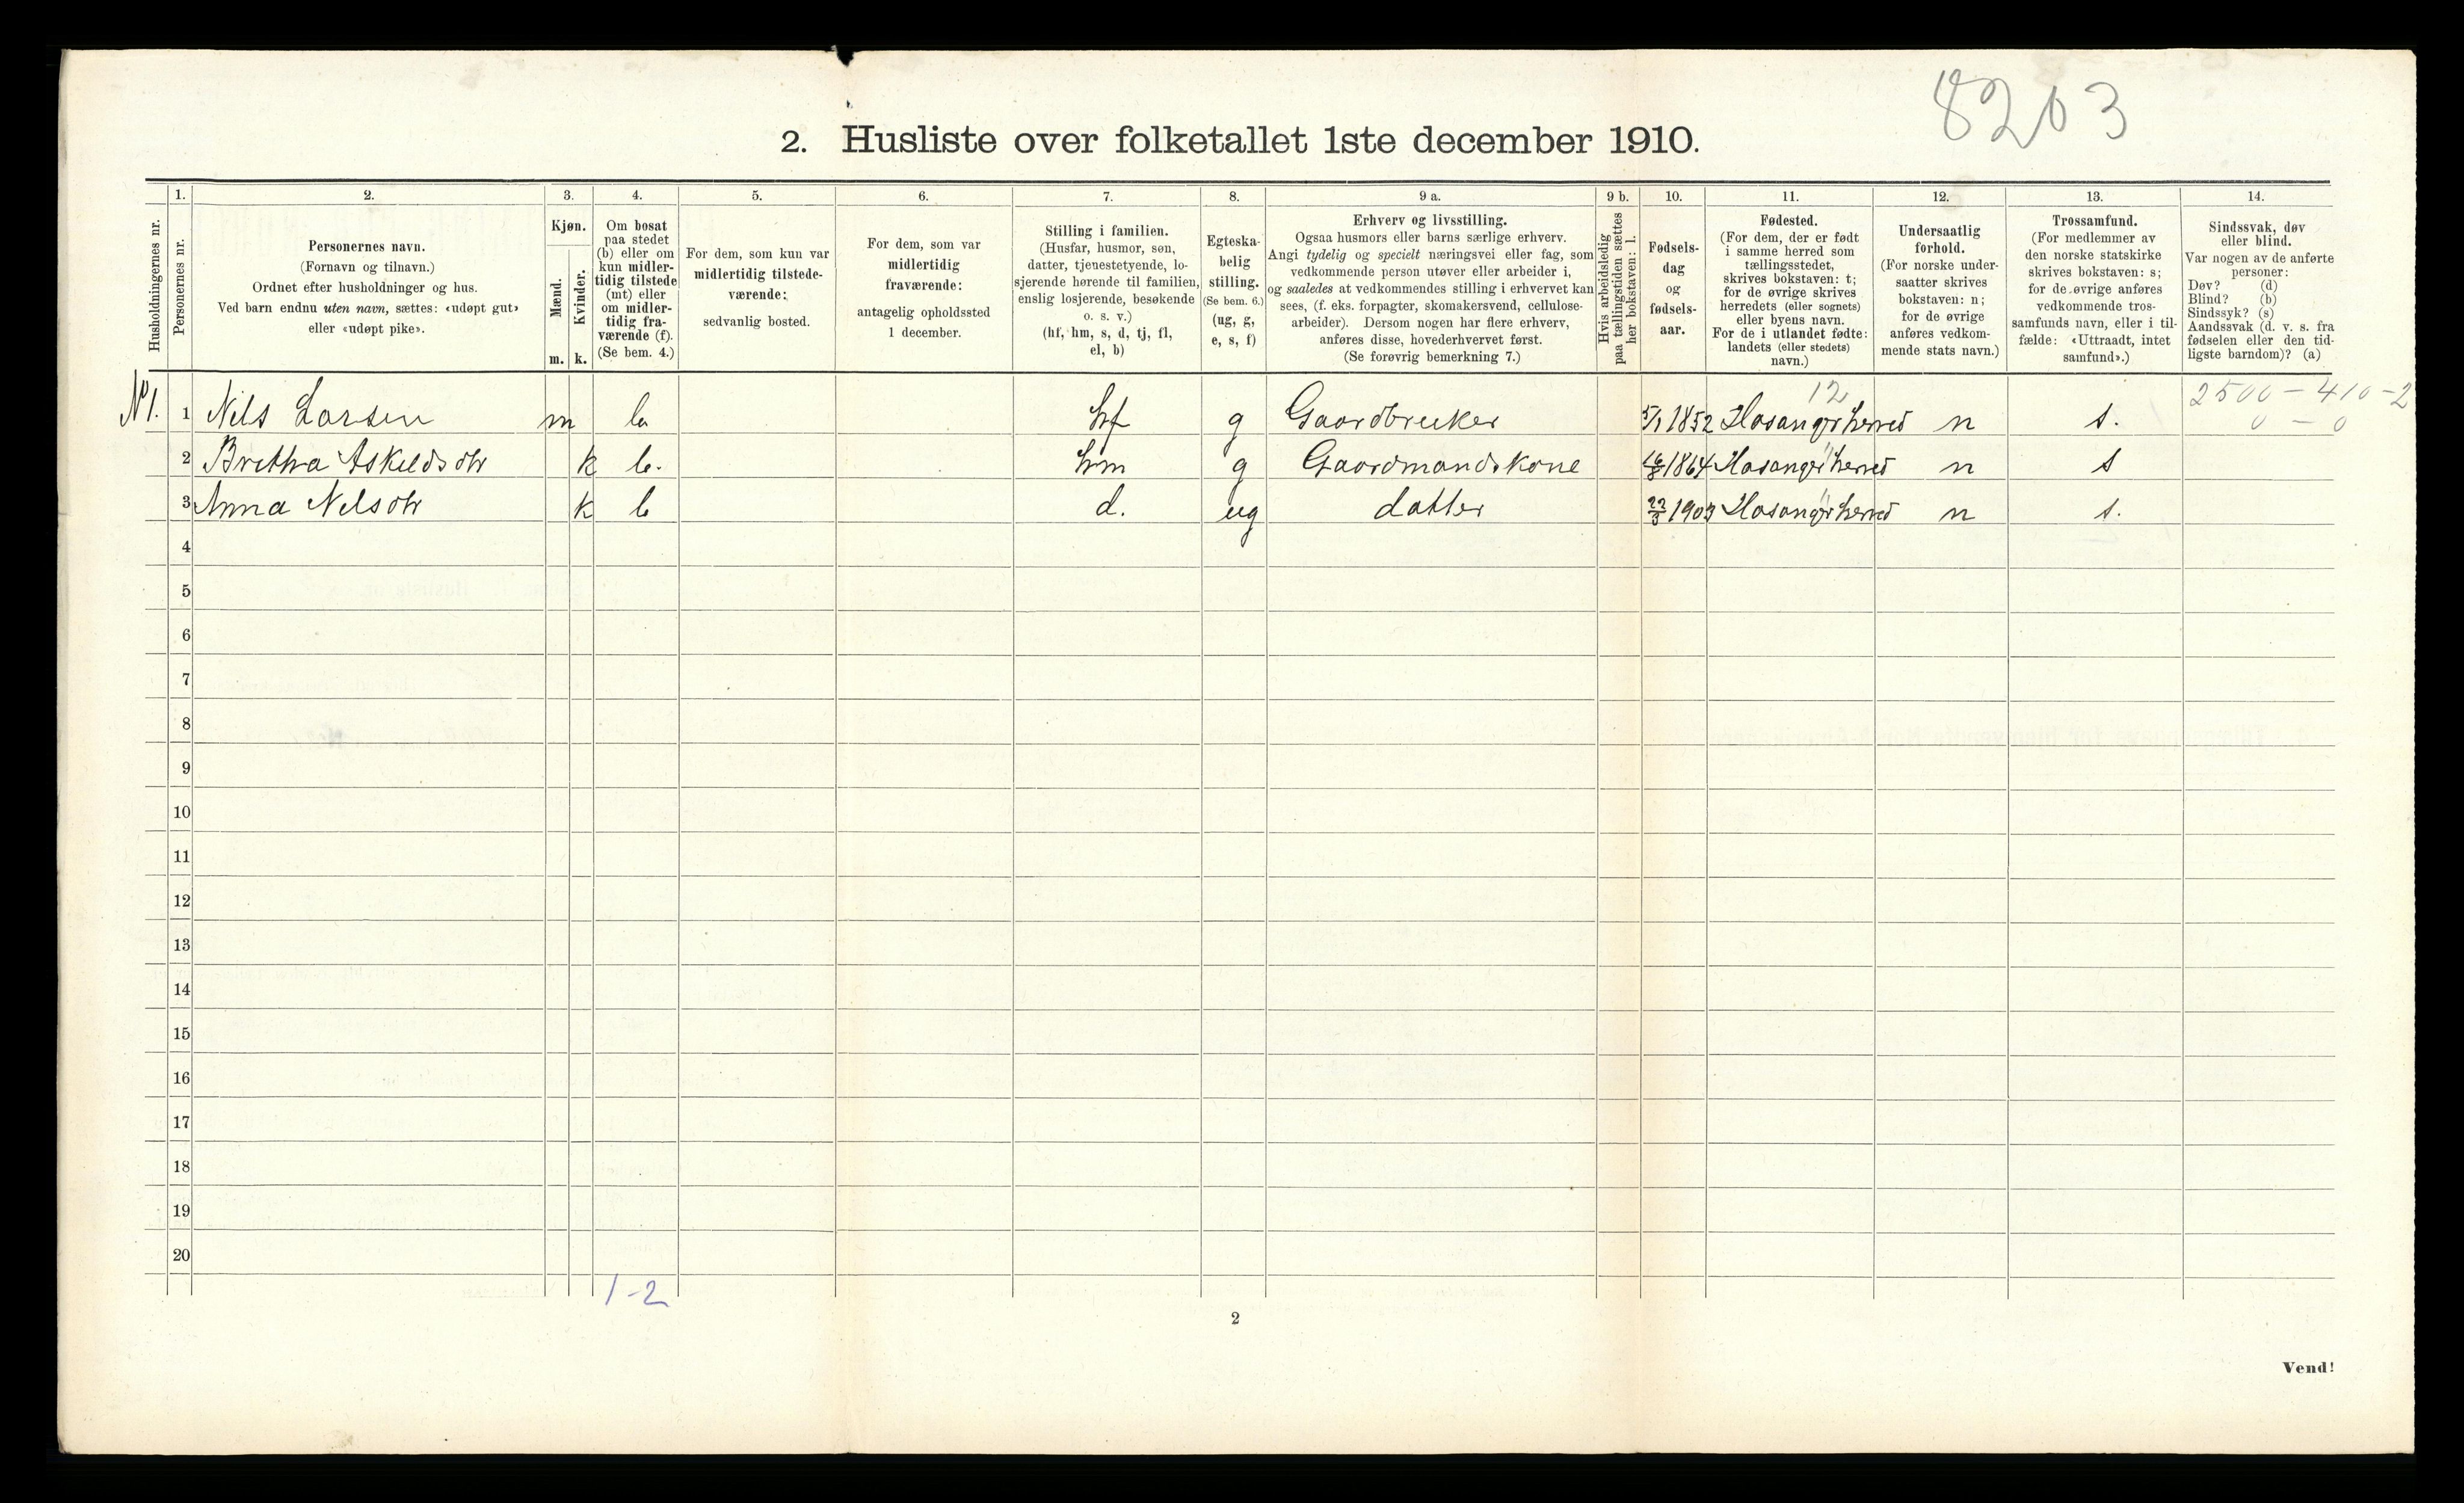 8203
2. Husliste over folketallet 1ste december 1910.
Husholdningernes nr.
1.
Personernes nr.
2.
Personernes navn.
(Fornavn og tilnavn.)
Ordnet efter husholdninger og hus.
Ved barn endnu uten navn, sættes: «udøpt gut»
eller «udøpt pike».
3.
Kjøn.
Mænd.
Kvinder.
m. k.
4.
Om bosat
paa stedet
(b) eller om
kun midler-
tidig tilstede
(mt) eller
om midler-
tidig fra-
værende (f).
(Se bem. 4.)
5.
For dem, som kun var
midlertidig tilstede-
værende:
sedvanlig bosted.
6.
For dem, som var
midlertidig
fraværende:
antagelig opholdssted
1 december.
7.
Stilling i familien.
(Husfar, husmor, søn,
datter, tjenestetyende, lo-
sjerende hørende til familien,
enslig losjerende, besøkende
o. s. v.)
(hf, hm, s, d, tj, fl,
el, b)
8.
Egteska-
belig
stilling.
(Se bem. 6.)
(ug, g,
e, s, f)
9 a.
Erhverv og livsstilling.
Ogsaa husmors eller barns særlige erhverv.
Angi tydelig og specielt næringsvei eller fag, som
vedkommende person utøver eller arbeider i,
og saaledes at vedkommendes stilling i erhvervet kan
sees, (f. eks. forpagter, skomakersvend, cellulose-
arbeider). Dersom nogen har flere erhverv,
anføres disse, hovederhvervet først.
(Se forøvrig bemerkning 7.)
9 b.
Hvis arbeidsledig
paa tællingstiden sættes
her bokstaven: l.
10.
Fødsels-
dag
og
fødsels-
aar.
11.
Fødested.
(For dem, der er født
i samme herred som
tællingsstedet,
skrives bokstaven: t;
for de øvrige skrives
herredets (eller sognets)
eller byens navn.
For de i utlandet fødte:
landets (eller stedets)
navn.)
12.
Undersaatlig
forhold.
(For norske under-
saatter skrives
bokstaven: n;
for de øvrige
anføres vedkom-
mende stats navn.)
13.
Trossamfund.
(For medlemmer av
den norske statskirke
skrives bokstaven: s;
for de øvrige anføres
vedkommende tros-
samfunds navn, eller i til-
fælde: «Uttraadt, intet
samfund».)
14.
Sindssvak, døv
eller blind.
Var nogen av de anførte
personer:
Døv? (d)
Blind? (b)
Sindssyk? (s)
Aandssvak (d. v. s. fra
fødselen eller den tid-
ligste barndom)? (a)
12 2500 - 410 - 2
0 - 0
No 1. 1 Nils Larsen m b hf g Gaardbruker 5/1 1852 Hosanger herred n s.
2 Bretha Askeldsdtr k b. hm g Gaardmandskone 16/8 1864 Hosanger herred n s
3 Anna Nelsdtr k b d. ug datter 22/3 1903 Hosanger herred n s.
4
5
6
7
8
9
10
11
12
13
14
15
16
17
18
19
20
1-2
2
Vend!